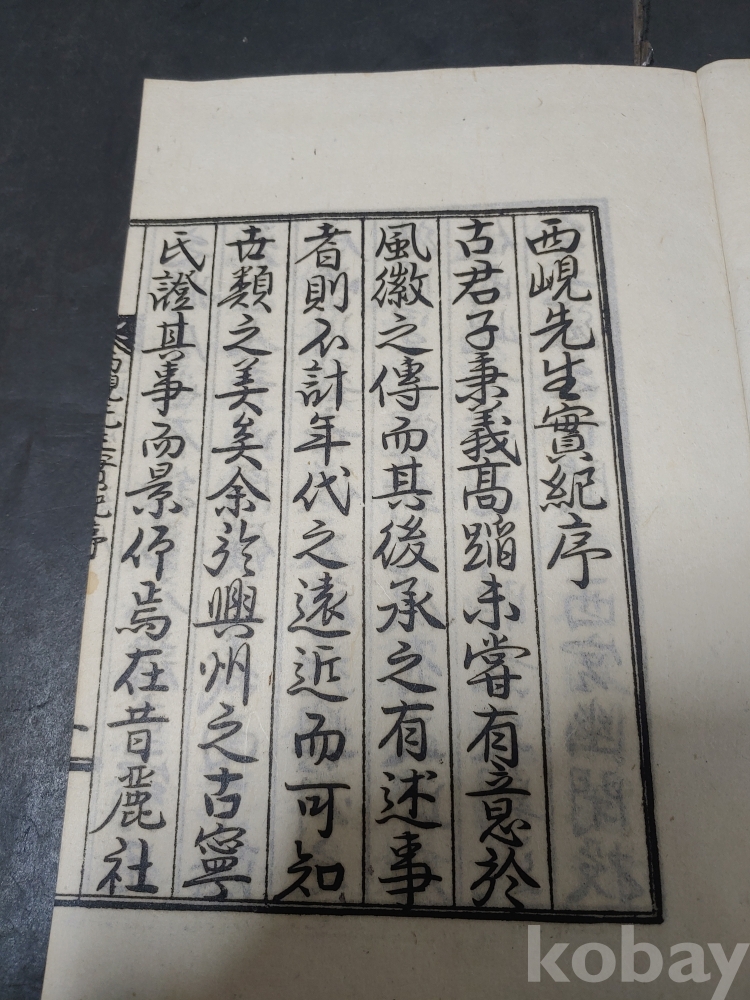 西峴先生實紀序
古君子秉義高蹈未嘗有意於
風徽之傳而其後承之有述事
者則不計年代之遠近而可知
世類之美矣余於興州之古寧
氏證其事而景仰焉在昔麗社
西峴先生實紀序
kobay